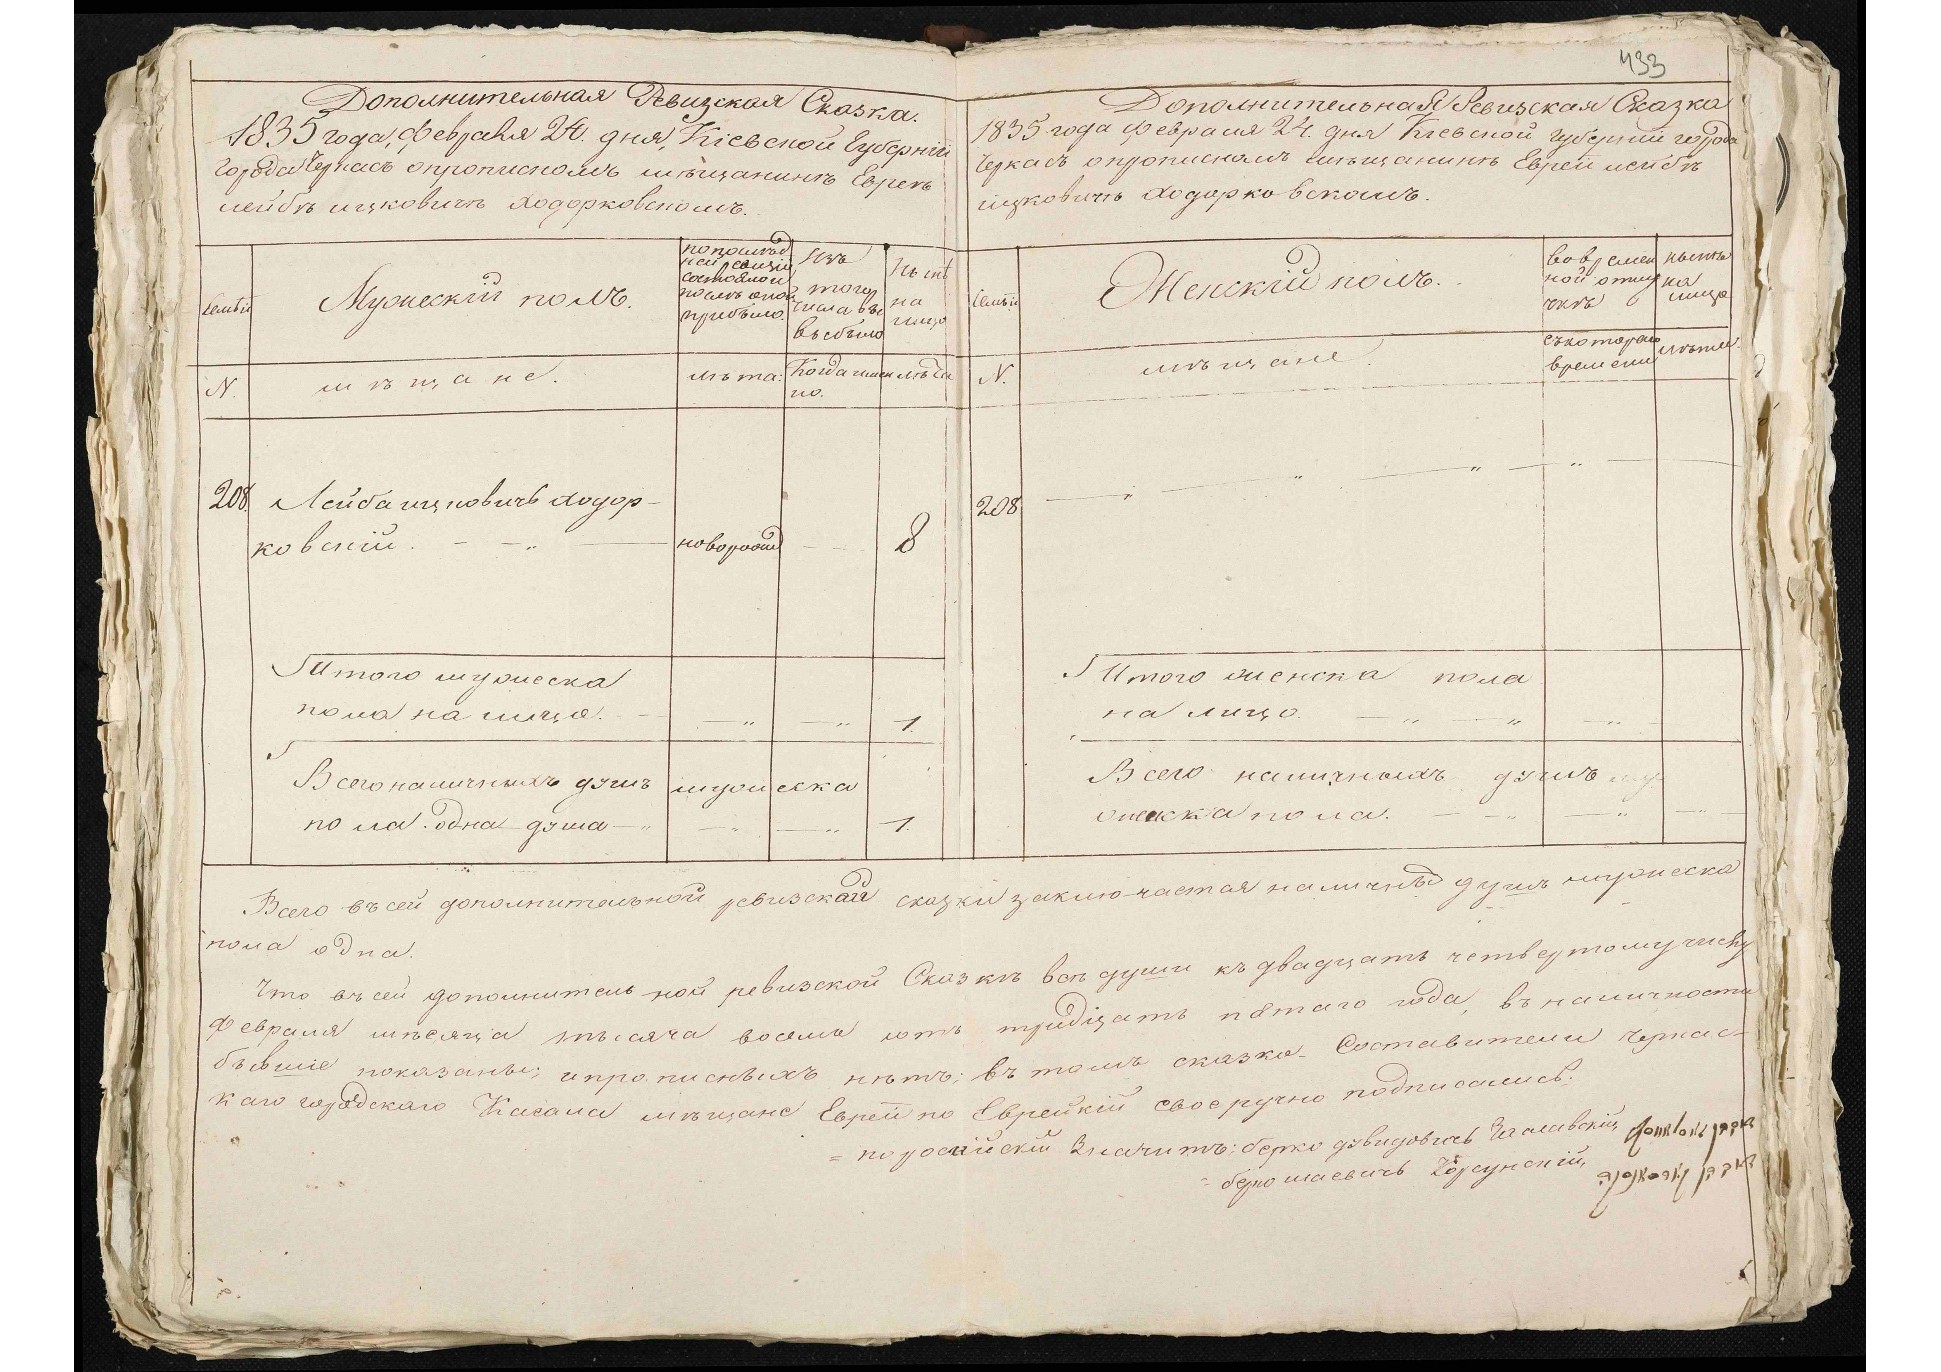 433
Дополнительная Ревизская Сказка.
1835 года, февраля 24. дня, Кіевской Губерніи
города Черкасъ о прописномъ мѣщанинѣ Евреѣ
лейбѣ ицковичѣ ходорковскомъ.
Семьи
Мужескій полъ.
по послѣд
ней ревизіи
состояло и
послѣ оной
прибыло.
Изъ
того
числа
выбыло
Нынѣ
на
лицо
N.
мѣщане.
лѣта.
Когда имен
но.
лѣта
208.
Лейба ицковичъ ходор-
ковскій. — — „ —— новорожд — — 8
Итого мужеска
пола на лицо. — — „ — „ 1.
Всего наличныхъ душъ мужеска
пола. одна душа — „ — „ — „ 1.
Дополнительная Ревизская Сказка
1835 года февраля 24. дня Кіевской губерніи города
Черкасъ о прописномъ мѣщанинѣ Евреи лейбѣ
ицковичѣ ходорковскомъ.
семьи
Женскій полъ.
во времен
ной отлу
чкѣ
нынѣ
на
лицо
N.
мѣщане.
съ котораго
времени
лѣта.
208
— „ — „ — „ — „ —
Итого женска пола
на лицо. — „ — „ — „ —
Всего наличныхъ душъ
женска пола. — — „ — „ — „ —
Всего въ сей дополнительной ревизской сказки заключается наличныхъ душъ мужеска
пола одна.
Что въ сей дополнительной ревизской Сказкѣ всѣ души къ двадцать четвертому числу
февраля мѣсяца тысяча восемь сотъ тридцать пятаго года, въ наличности
бывшіе показаны; и прописныхъ нѣтъ; въ томъ сказко- Составители Черкас-
каго городскаго Кагала мѣщане Евреи по Еврейкій своеручно подписались:
= по російскій Значитъ: берко давидовичъ
= берко Корсунскій,